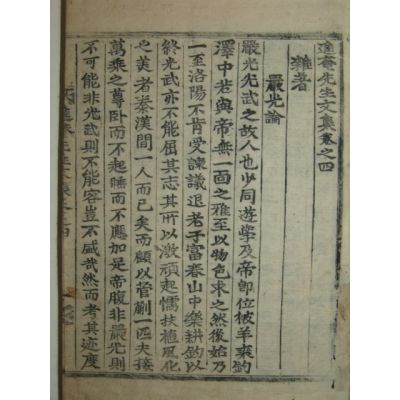 適菴先生文集卷之四
雜著
嚴光論
嚴光光武之故人也少同遊學及帝卽位披羊裘釣
澤中若與帝無一面之雅至以物色求之然後始乃
一至洛陽不肯受諫議退老于富春山中樂耕釣以
終光武亦不能屈其志其所以激頑起懦扶植風化
之美者秦漢間一人而已矣而顧以管蒯一匹夫接
萬乘之尊卧而不起睡而不應加足帝腹非嚴光則
不可能非光武則不能容豈不盛哉然而考其迹度